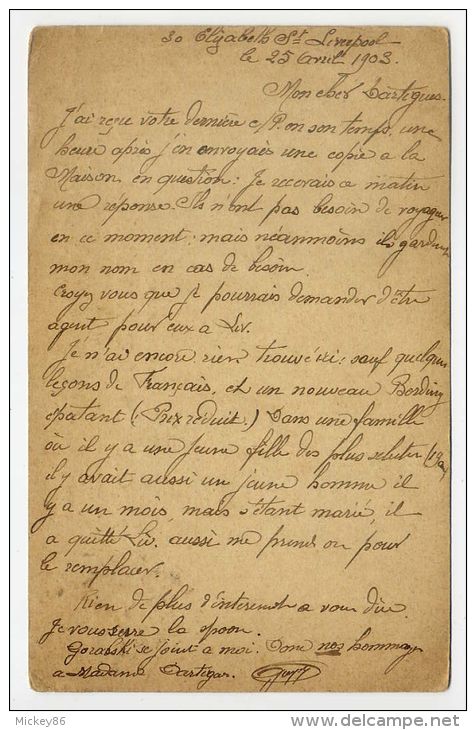 30 Elizabeth St. Liverpool
le 25 avril 1903.
Mon cher Lartigues.
J'ai reçu votre dernière c/P. en son temps, une
heure après j'en envoyais une copie a la
Maison en question: Je recevais ce matin
une réponse. Ils n'ont pas besoin de voyageur
en ce moment; mais néanmoins ils gardent
mon nom en cas de besoin.
Croyez vous que je pourrais demander d'être
agent pour eux a Liv.
Je n'ai encore rien trouvé ici; sauf quelques
leçons de Français, et un nouveau Bording
epatant (Prix réduit.) Dans une famille
où il y a une jeune fille des plus
il y avait aussi un jeune homme il
y a un mois, mais s'étant marié, il
a quitté Liv. aussi me prend on pour
le remplacer.
Rien de plus d'interessant a vous dire.
Je vous serre la
Goralski se joint a moi. Donc nos hommages
a Madame Lartigues.
Mickey86
http://www.delcampe.net